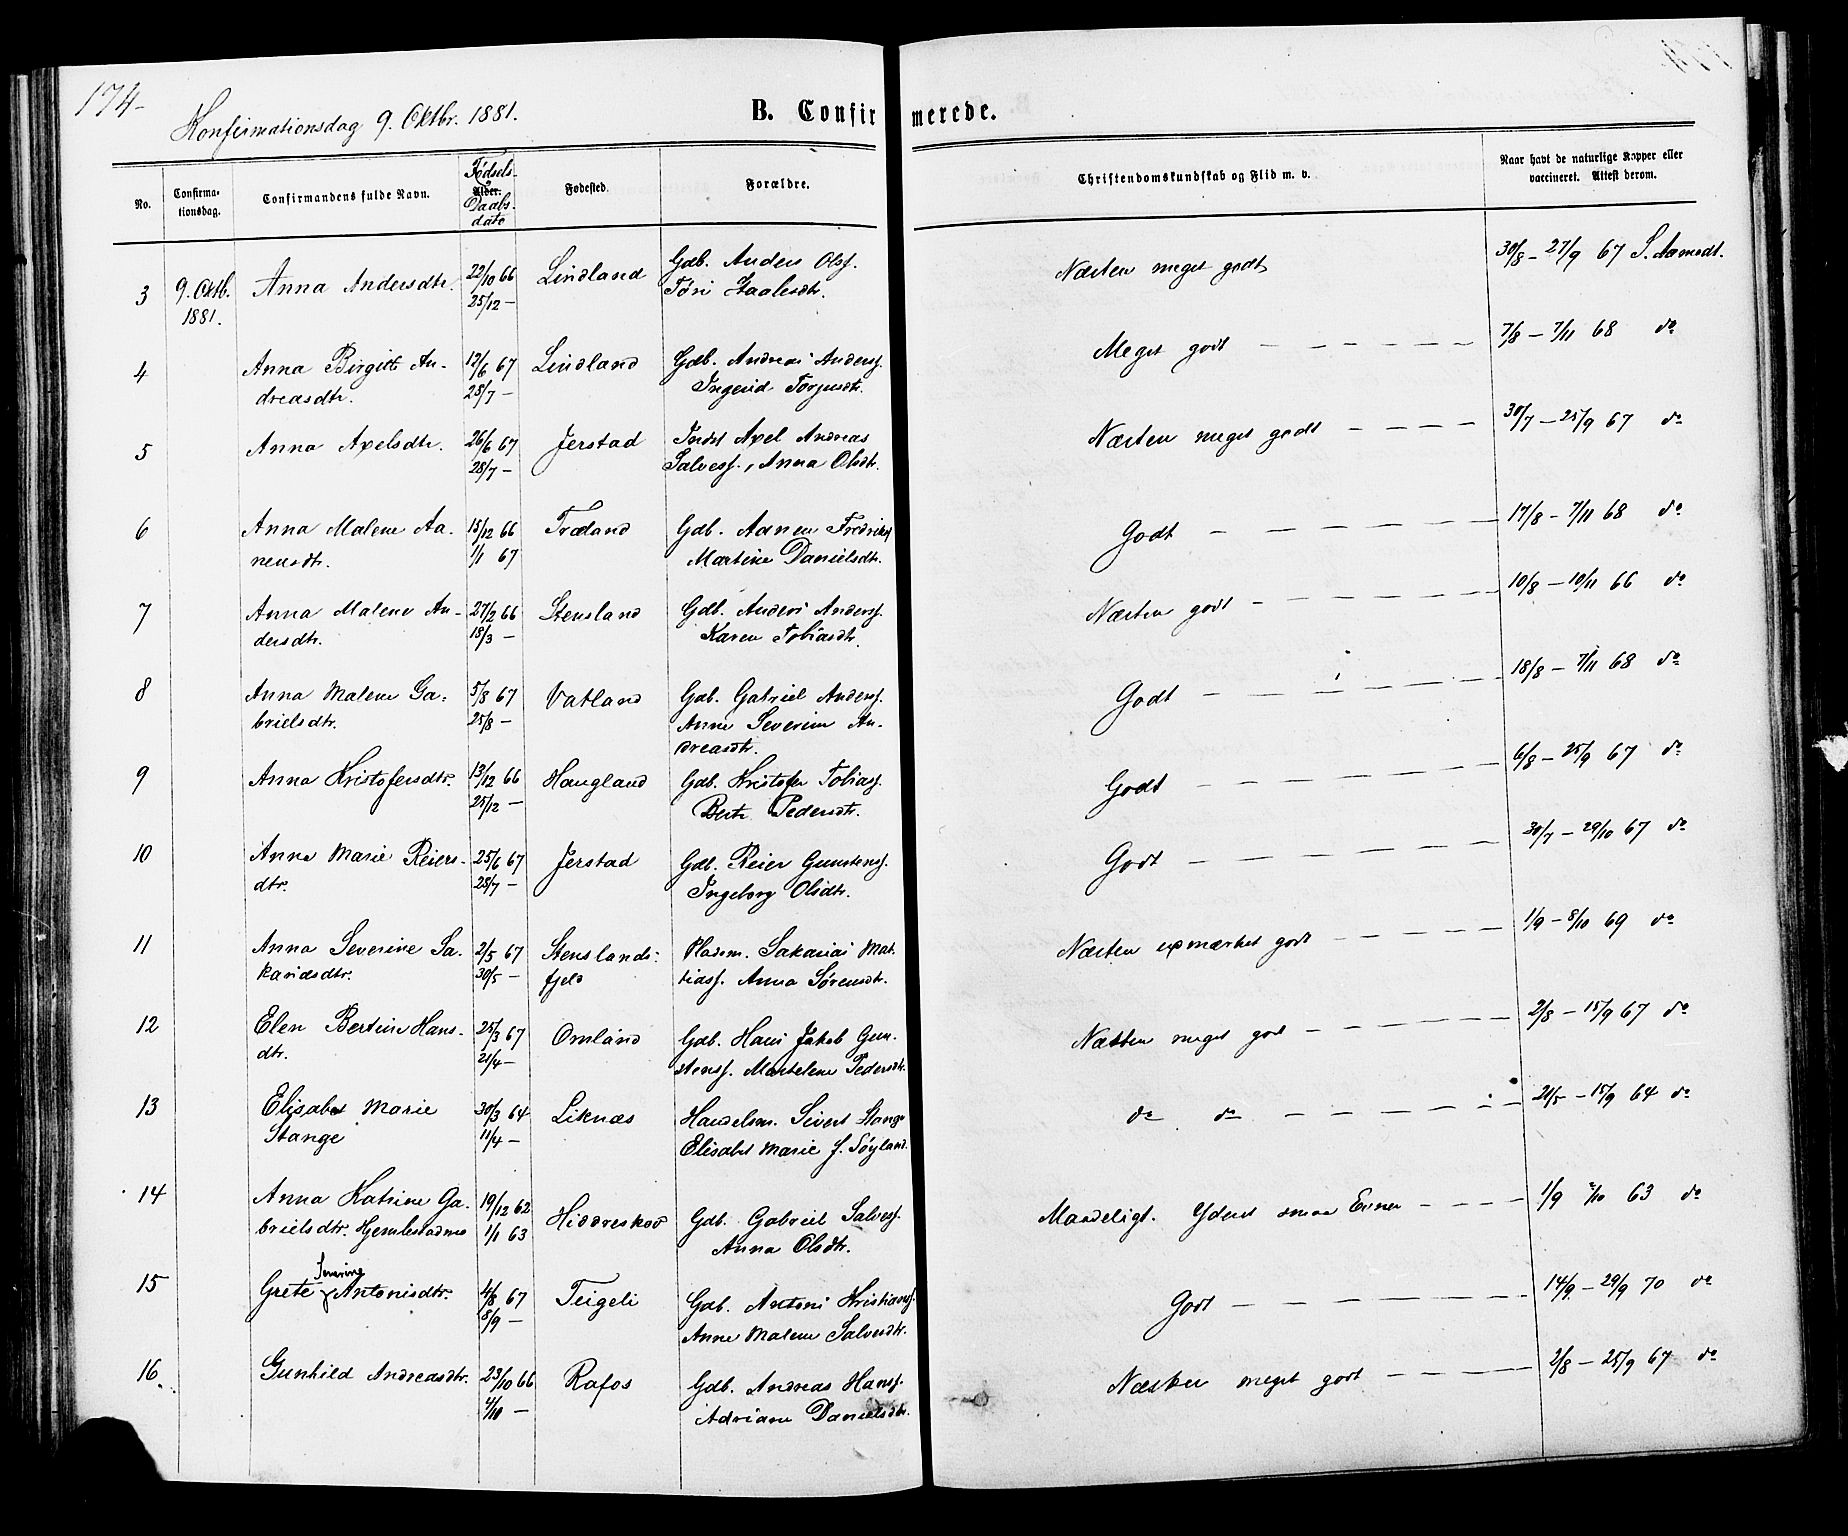 174-
Konfirmationsdag 9. Oktbr. 1881.
B. Confirmerede.
No.
Confirma-
tionsdag.
Confirmandens fulde Navn.
Fødsels-
Alder.
Daabs-
dato
Fødested.
Forældre.
Christendomskundskab og Flid m. v.
Naar havt de naturlige Kopper eller
vaccineret. Attest derom.
3 9. Oktb. Anna Andersdtr. 22/10 66 Lindland Gdb. Anders Olsf. Næsten meget godt 30/8 – 27/9 67 S. Aamodt.
1881. 25/12 – Töri
4 Anna Birgitte An- 12/6 67 Lindland Gdb. Andreas Andersf. Meget godt – – – – – 7/8 – 7/11 68 do
dreasdtr. 28/7 – Ingerid Torjusdtr.
5 Anna Axelsdtr. 26/6 67 Jerstad Indst Axel Andreas Næsten meget godt – – – – 30/7 – 25/9 67 do
28/7 – Salvesf., Anna Olsdtr.
6 Anna Malene Aa- 15/12 66 Træland Gdb. Aanen Fredriksf Godt – – – – – – 17/8 – 7/11 68 do
nensdtr. 1/1 67 Martine Danielsdtr.
7 Anna Malene An- 27/2 66 Stensland Gdb. Anders Andersf. Næsten godt – – – – – – 10/8 – 10/11 66 do
dersdtr. 18/3 – Karen Tobiasdtr.
8 Anna Malene Ga- 5/8 67 Vatland Gdb. Gabriel Andersf. Godt – – – – – – 18/8 – 7/11 68 do
brielsdtr. 25/8 – Anne Severine An-
dreasdtr.
9 Anna Kristofersdtr. 13/12 66 Haugland Gdb. Kristofer Tobiasf. Godt – – – – – – 6/8 – 25/9 67 do
25/12 – Berte Pedersdtr.
10 Anna Marie Reiers- 25/6 67 Jerstad Gdb. Reier Gunstensf. Godt – – – – – – 30/7 – 29/10 67 do
dtr. 28/7 – Ingeborg Olsdtr.
11 Anna Severine Sa- 2/5 67 Stenslands- Pladsm. Sakarias Mat- Næsten udmærket godt – – – – 1/9 – 8/10 69 do
kariasdtr. 30/5 – fjeld tiasf. Anna Sørensdtr.
12 Elen Bertine Hans- 25/3 67 Omland Gdb. Hans Jakob Gun- Næsten meget godt – – – – – 2/8 – 15/9 67 do
dtr. 21/4 – stensf. Martelene Pedersdtr.
13 Elisabet Marie 30/3 64 Liknæs Handelsm. Sivert Stange do do – – – – – – 21/5 – 15/9 64 do
Stange 11/4 – Elisabet Marie f. Söyland.
14 Anna Katrine Ga- 19/12 62 Hiddreskov Gdb. Gabriel Salvesf. Maadeligt. Yderst smaa Evner – – – – 1/9 /10 63 do
brielsdtr. 1/1 63 Anna Olsdtr.
15 Grete Severine Antonisdtr. 4/8 67 Teigeli Gdb. Antoni Kristiansf. Godt – – – – – – 14/9. – 29/9 70 do
8/9 – Anne Malene Salvesdtr.
16. Gunhild Andreasdtr. 23/10 66 Rafos Gdb. Andreas Hansf. Næsten meget godt – – – – 2/8 – 25/9 67 do
4/10 – Adriane Danielsdtr.